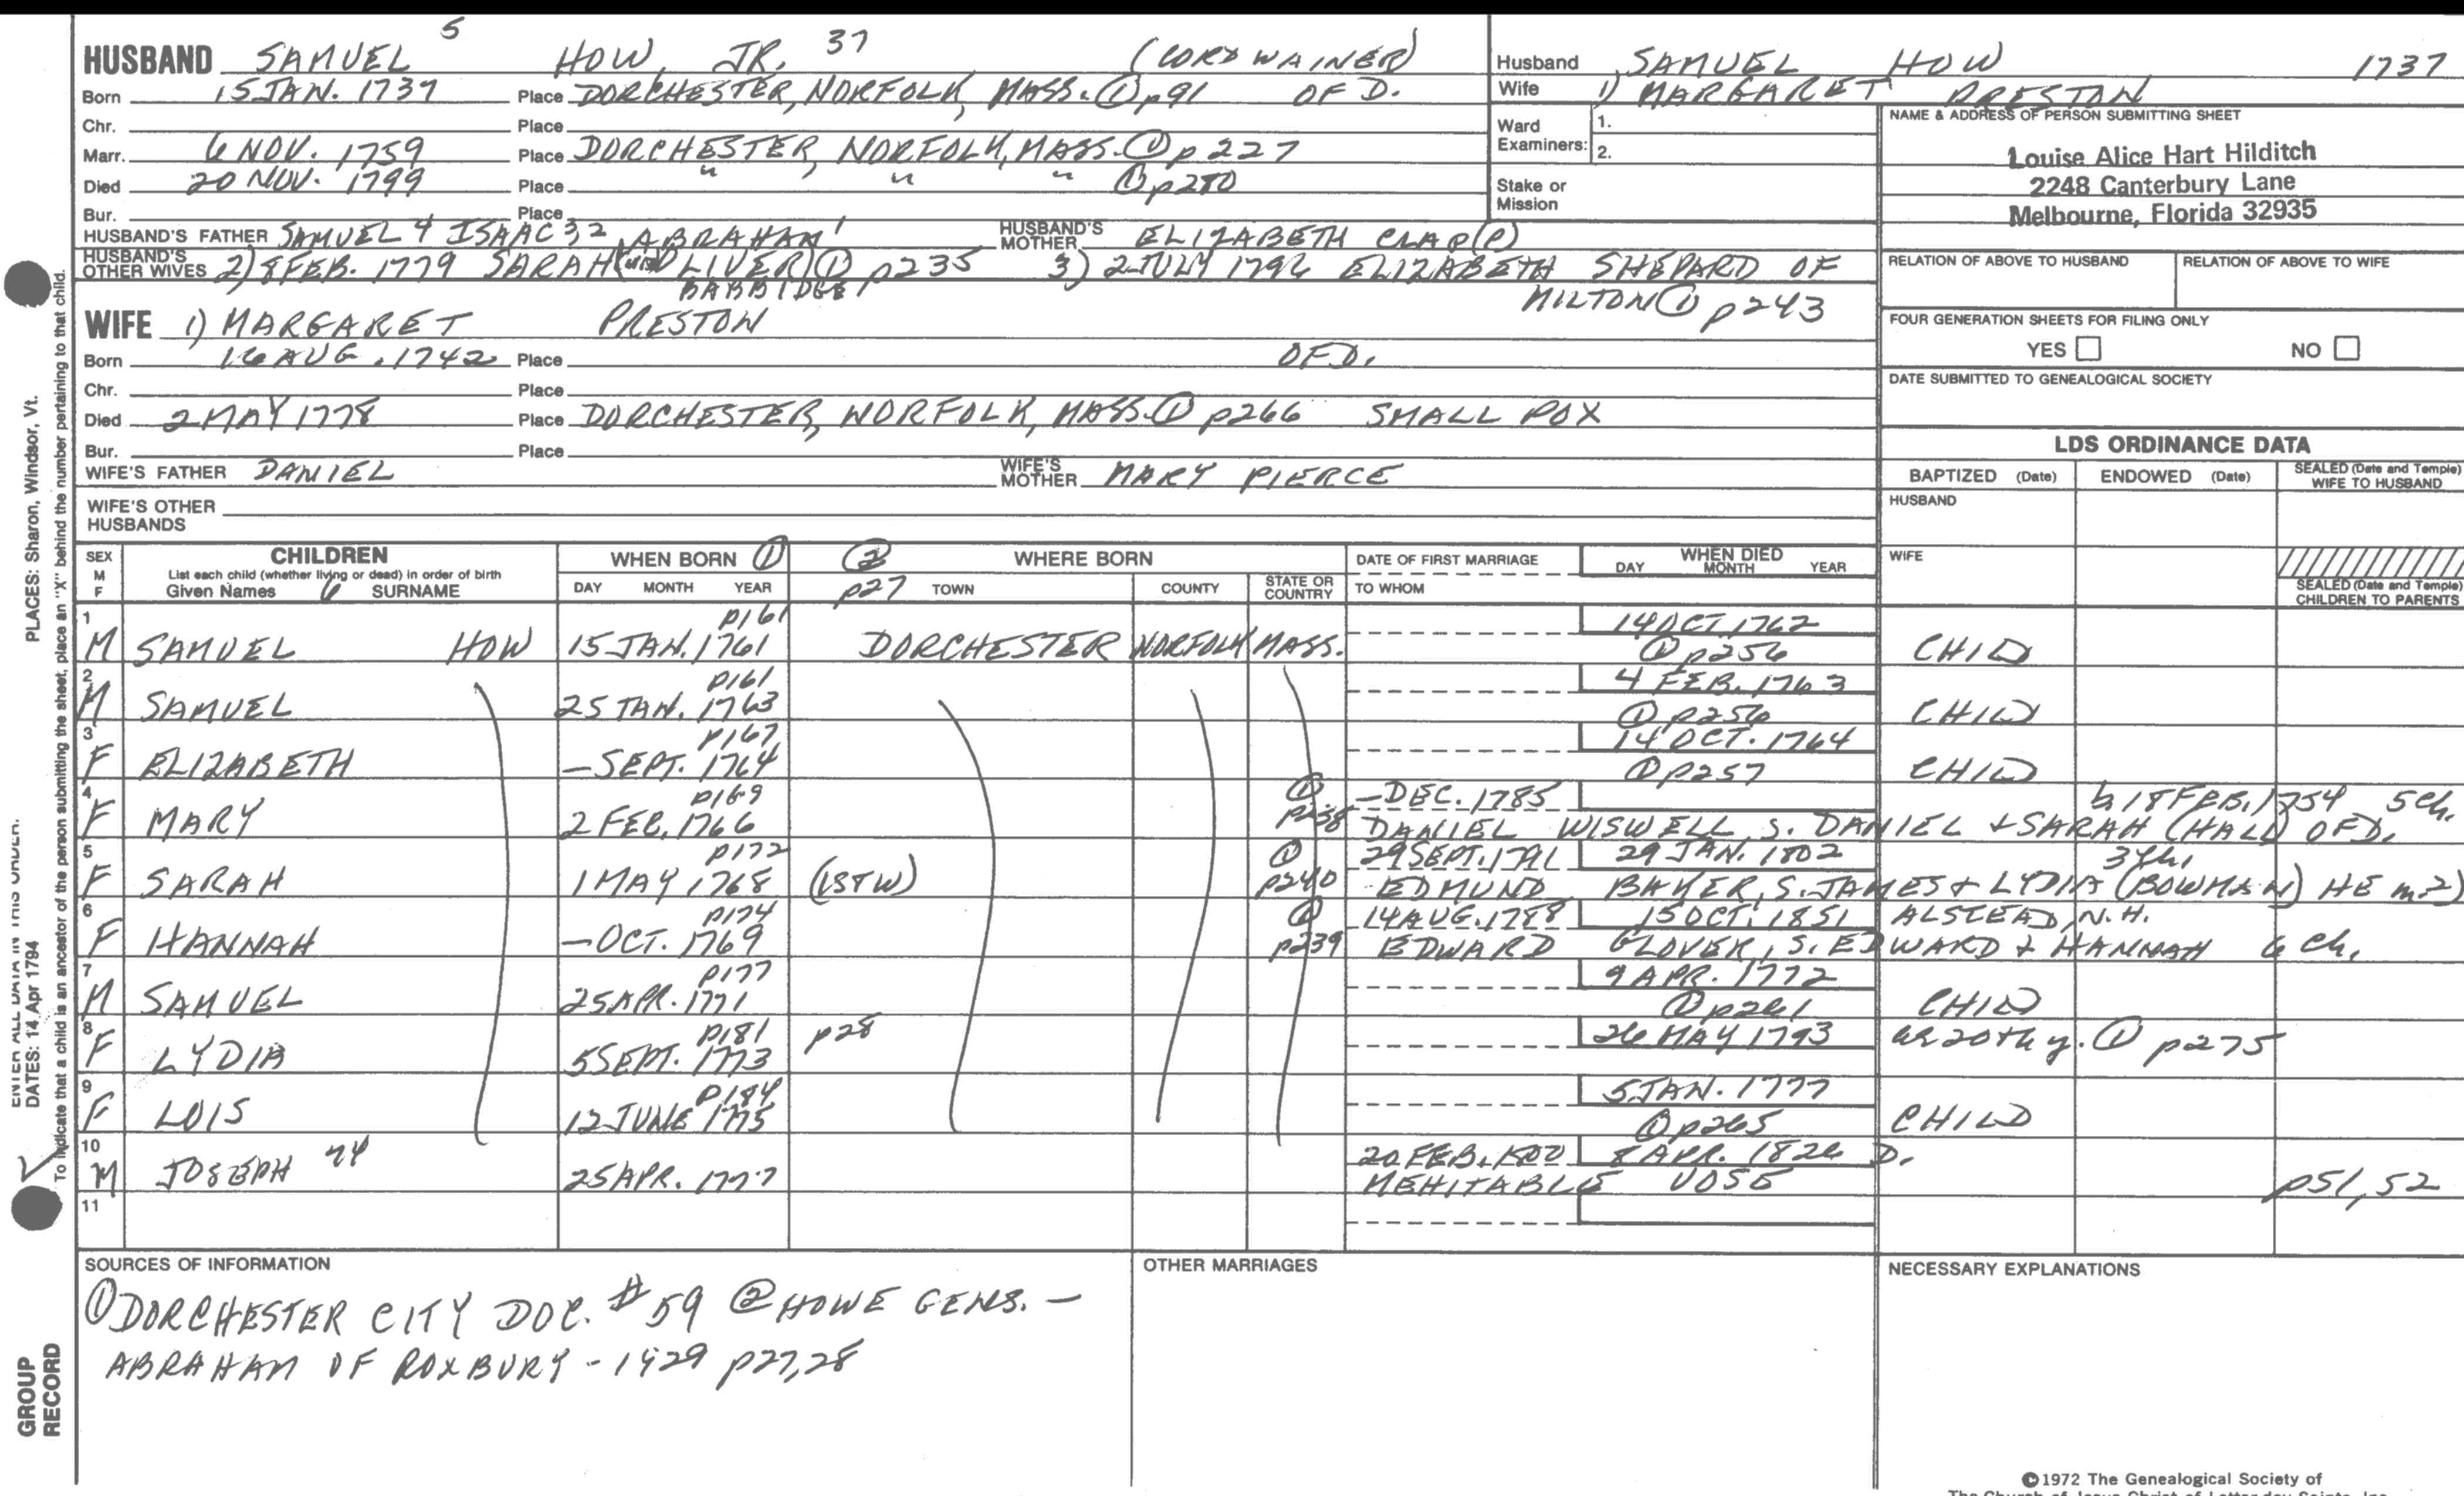 HUSBAND SAMUEL 5 HOW, JR. 37 (CORDWAINER)
Born 15 JAN. 1737 Place DORCHESTER, NORFOLK, MASS. ① p91 OF D.
Chr. Place
Marr. 6 NOV. 1759 Place DORCHESTER, NORFOLK, MASS. ① p227
Died 20 NOV. 1799 Place " " " ① p280
Bur. Place
HUSBAND'S FATHER SAMUEL 4 ISAAC 3,2 ABRAHAM 1 HUSBAND'S MOTHER ELIZABETH CLAP(P)
HUSBAND'S OTHER WIVES 2) 8 FEB. 1779 SARAH (WID) ① p235 3) 2 JULY 1792 ELIZABETH SHEPARD OF
BABBIDGE MILTON ① p243
Husband SAMUEL HOW 1737
Wife 1) MARGARET PRESTON
Ward Examiners: 1.
2.
Stake or Mission
NAME & ADDRESS OF PERSON SUBMITTING SHEET
Louise Alice Hart Hilditch
2248 Canterbury Lane
Melbourne, Florida 32935
RELATION OF ABOVE TO HUSBAND RELATION OF ABOVE TO WIFE
FOUR GENERATION SHEETS FOR FILING ONLY
YES NO
DATE SUBMITTED TO GENEALOGICAL SOCIETY
WIFE 1) MARGARET PRESTON
Born 16 AUG. 1742 Place OF D.
Chr. Place
Died 2 MAY 1778 Place DORCHESTER, NORFOLK, MASS. ① p266 SMALL POX
Bur. Place
WIFE'S FATHER DANIEL WIFE'S MOTHER MARY PIERCE
WIFE'S OTHER HUSBANDS
LDS ORDINANCE DATA
BAPTIZED (Date) ENDOWED (Date) SEALED (Date and Temple) WIFE TO HUSBAND
HUSBAND
WIFE
SEALED (Date and Temple) CHILDREN TO PARENTS
SEX M F CHILDREN
List each child (whether living or dead) in order of birth
Given Names 6 SURNAME
WHEN BORN ① DAY MONTH YEAR
② p27 WHERE BORN TOWN COUNTY STATE OR COUNTRY
DATE OF FIRST MARRIAGE TO WHOM
WHEN DIED DAY MONTH YEAR
1 p161 14 OCT 1762
M SAMUEL HOW 15 JAN. 1761 DORCHESTER NORFOLK MASS. ① p256 CHILD
2 p161 4 FEB. 1763
M SAMUEL 25 JAN. 1763 ① p256 CHILD
3 p167 14 OCT. 1764
F ELIZABETH – SEPT. 1764 ① p257 CHILD
4 p169 ① – DEC. 1785 b 18 FEB. 1754 5 ch.
F MARY 2 FEB. 1766 p238 DANIEL WISWELL, S. DANIEL + SARAH (HALL) OF D.
5 p172 ① 29 SEPT. 1791 29 JAN. 1802 3 ch.
F SARAH 1 MAY 1768 (1ST W) p240 EDMUND BAKER, S. JAMES + LYDIA (BOWMAN) HE m. 2)
6 p174 ① 14 AUG. 1788 15 OCT. 1851 ALSTEAD, N.H.
F HANNAH – OCT. 1769 p239 EDWARD GLOVER, S. EDWARD + HANNAH 6 ch.
7 p177 9 APR. 1772
M SAMUEL 25 APR. 1771 ① p261 CHILD
8 p181 p28 26 MAY 1793 20th y. ① p275
F LYDIA 5 SEPT. 1773
9 p184 5 JAN. 1777
F LOIS 12 JUNE 1775 ① p265 CHILD
10 20 FEB. 1800 8 APR. 1826 D.
M JOSEPH 74 25 APR. 1777 MEHITABLE VOSE p51, 52
11
SOURCES OF INFORMATION
① DORCHESTER CITY DOC. # 59 ② HOWE GENS. –
ABRAHAM OF ROXBURY - 1929 p27, 28
OTHER MARRIAGES
NECESSARY EXPLANATIONS
©1972 The Genealogical Society of
The Church of Jesus Christ of Latter-day Saints, Inc.
PLACES: Sharon, Windsor, Vt.
To indicate that a child is an ancestor of the person submitting the sheet, place an "X" behind the number pertaining to that child.
ENTER ALL DATA IN THIS ORDER:
DATES: 14 Apr 1794
GROUP RECORD